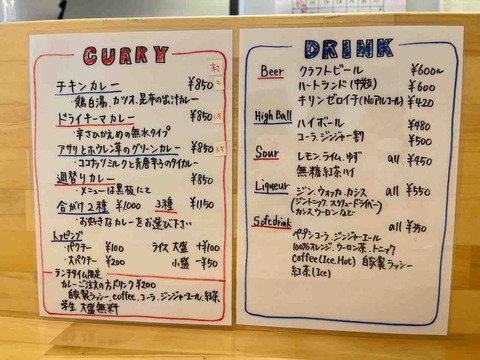 CURRY
チキンカレー ¥850
・鶏白湯、カツオ、昆布の出汁カレー
ドライキーマカレー ¥850
・辛さひかえめの無水タイプ
アサリとホウレン草のグリーンカレー ¥850
・ココナッツミルクと青唐辛子のタイカレー
週替りカレー ¥850
・メニューは黒板にて
合がけ2種 ¥1000 3種 ¥1150
・お好きなカレーをお選び下さい
トッピング
・パクチー ¥100 ライス 大盛 +¥100
・大パクチー ¥200 小盛 -¥50
ランチタイム限定
カレーご注文の方ドリンク¥200
自家製ラッシー、coffee、コーラ、ジンジャーエール、紅茶
学生 大盛無料
DRINK
Beer クラフトビール ¥600~
ハートランド(中ビン) ¥600
キリンゼロイチ(Noアルコール) ¥420
High Ball ハイボール ¥480
コーラ、ジンジャー割 ¥500
Sour レモン、ライム、ゆず all ¥450
無糖紅茶ハイ
Liqueur ジン、ウォッカ、カシス all ¥550
(ジントニック、スクリュードライバー
カシスウーロンなど)
Softdrink all ¥350
ペプシコーラ、ジンジャーエール
100%オレンジ、ウーロン茶、トニック
coffee(Ice.Hot) 自家製ラッシー
紅茶(Ice)